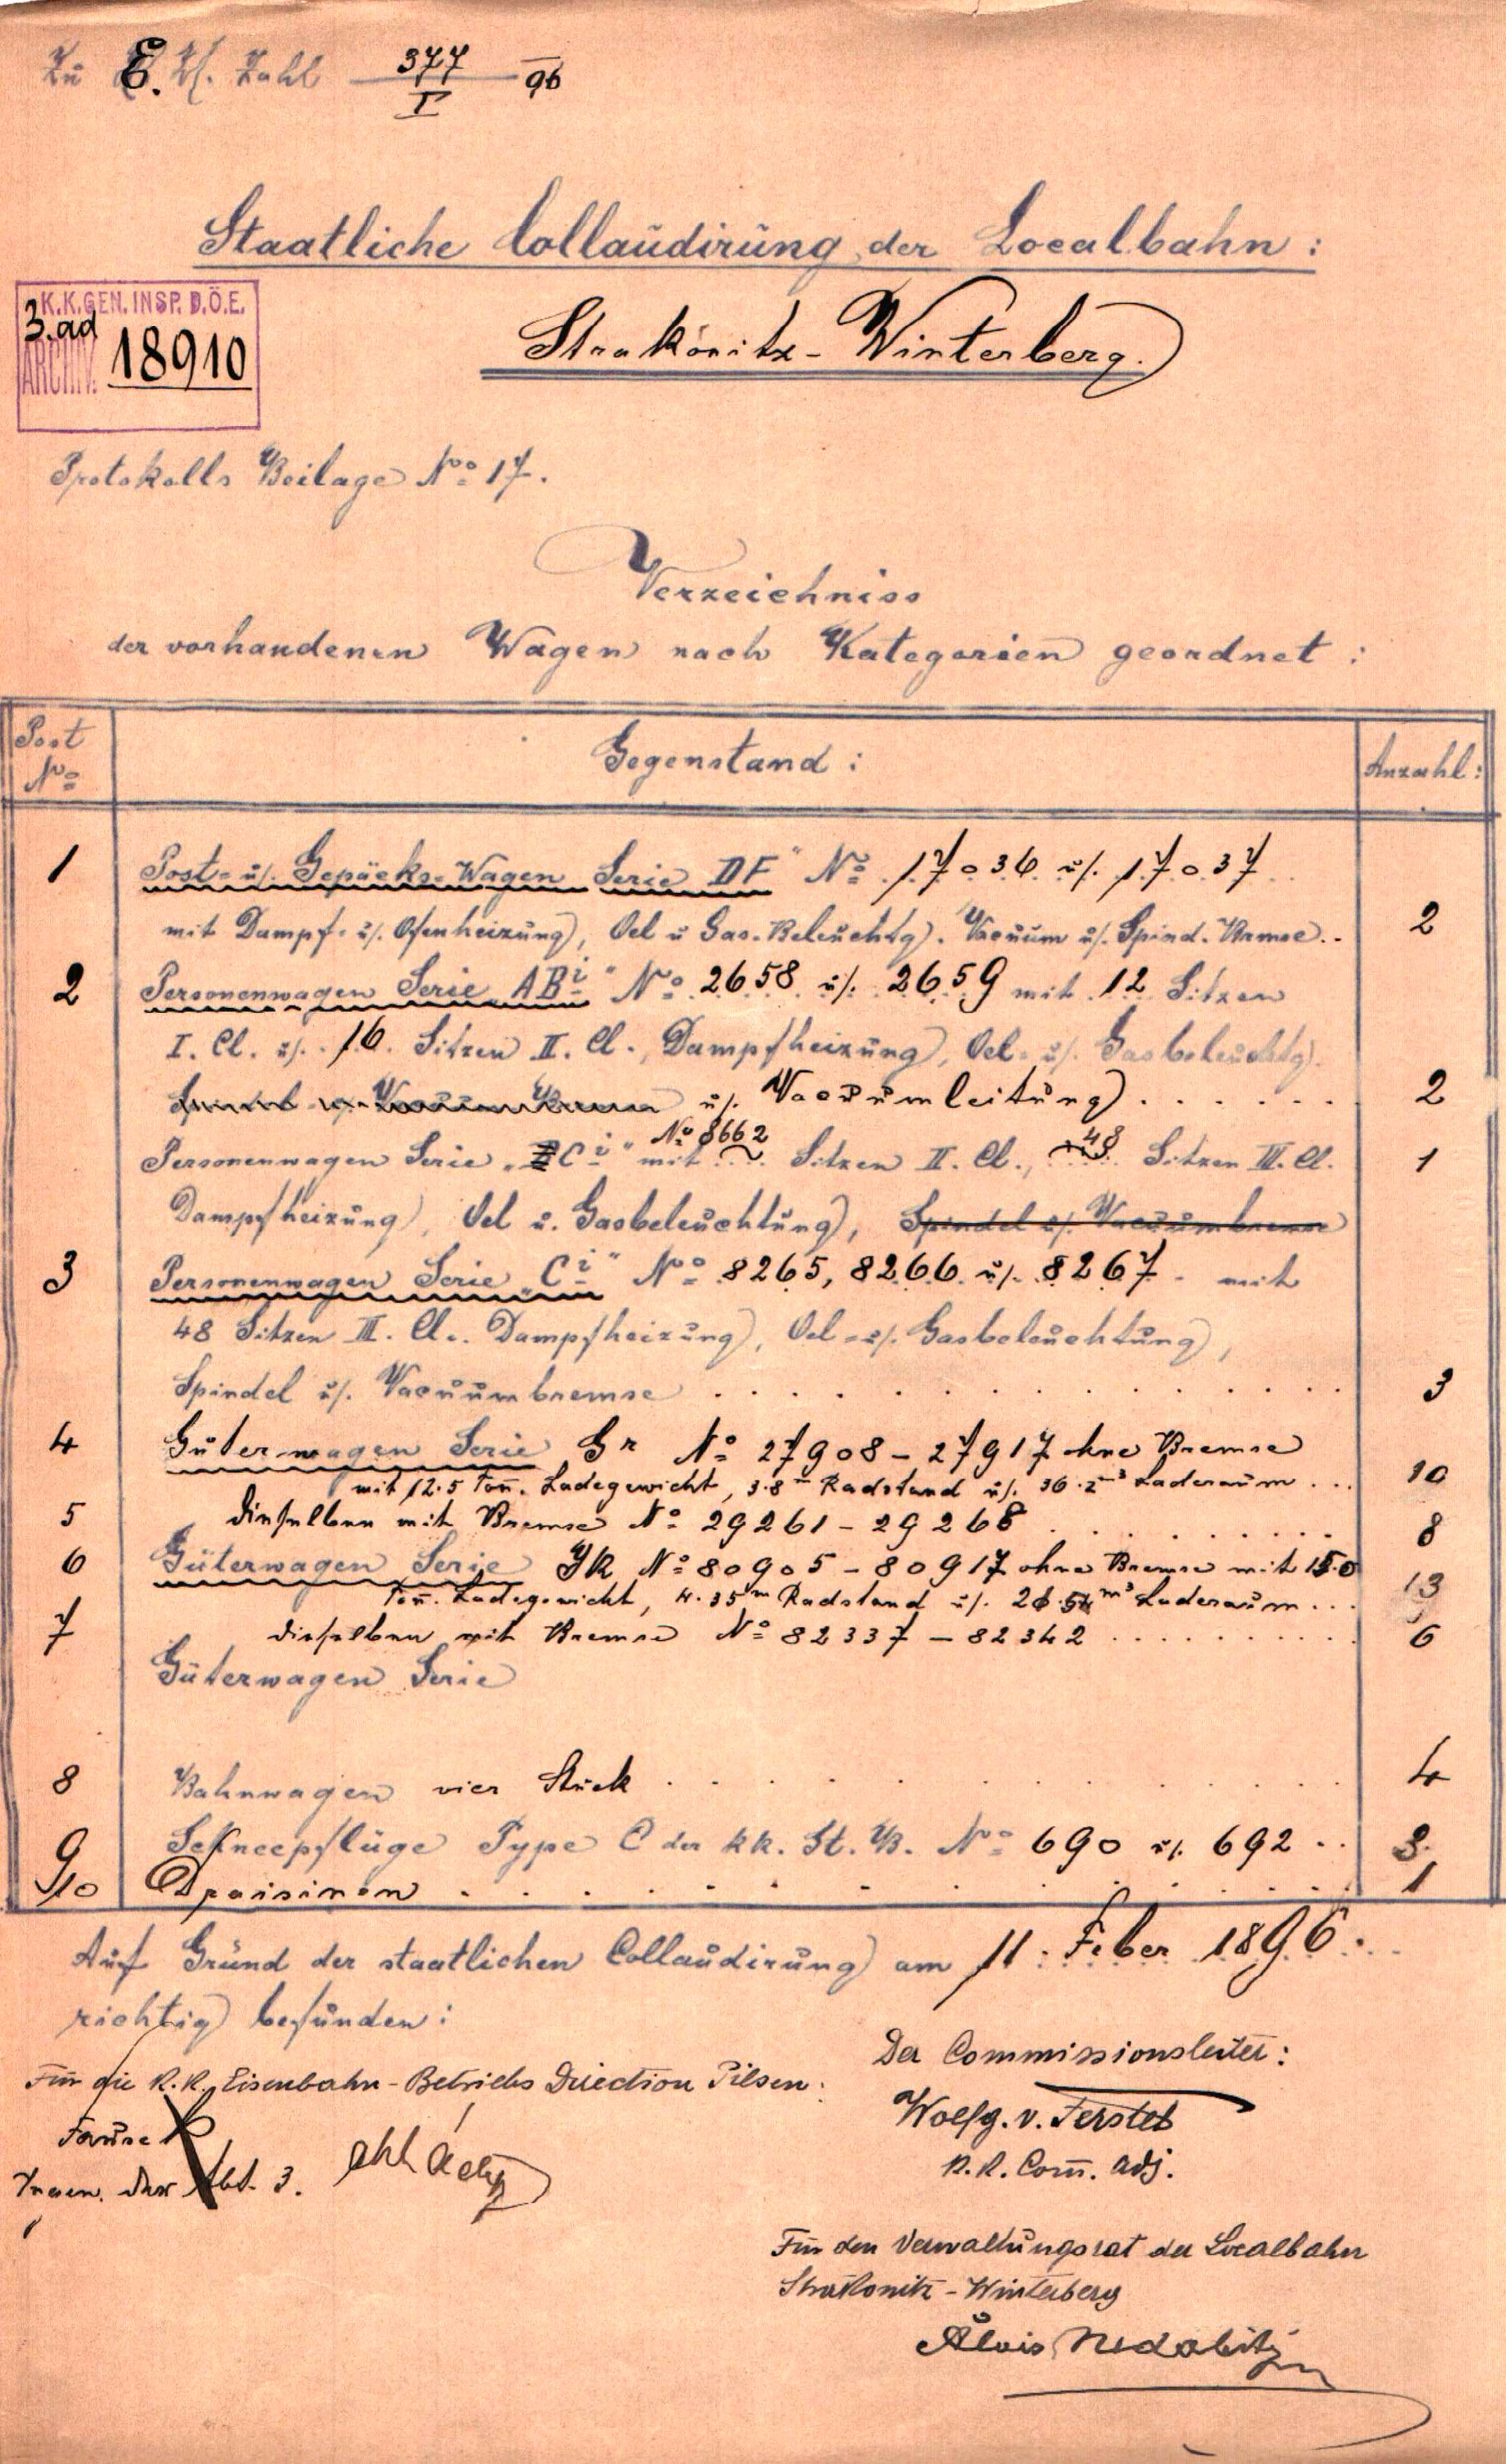 Zu E. Zl. Zahl 377/I 96
Staatliche Collaudirung der Localbahn:
K.K.GEN. INSP. D.Ö.E.
3. ad
ARCHIV. 18910
Strakonitz-Winterberg.
Protokolls Beilage No 17.
Verzeichniss
der vorhandenen Wagen nach Kategorien geordnet:
Post No Gegenstand: Anzahl:
1 Post- u. Gepäcks-Wagen Serie DF" No 17036 u. 17037
mit Dampf- u. Ofenheizung, Oel u Gas-Beleuchtg. Vacuum u. Spind. Bremse.. 2
2 Personenwagen Serie „ABi" No 2658 u. 2659 mit 12 Sitzen
I. Cl. u. 16 Sitzen II. Cl., Dampfheizung, Oel- u. Gasbeleuchtg.
u. Vacuumleitung . . . . . . 2
No 8662
Personenwagen Serie „Ci" mit ~ Sitzen II. Cl., 48 Sitzen III. Cl. 1
Dampfheizung, Oel u. Gasbeleuchtung, Spindel u. Vacuumbremse
3 Personenwagen Serie „Ci" No 8265, 8266 u. 8267 mit
48 Sitzen III. Cl.. Dampfheizung, Oel- u. Gasbeleuchtung,
Spindel u. Vacuumbremse . . . . . . . . . . . . 3
4 Güterwagen Serie Gr No 27908 - 27917 ohne Bremse
mit 12.5 Ton. Ladegewicht, 3.8 m Radstand u. 36.2 m3 Laderaum ... 10
5 dieselben mit Bremse No 29261 - 29268 . . . . . . . . . 8
6 Güterwagen Serie JK No 80905 - 80917 ohne Bremse mit 15.0
Ton. Ladegewicht, 4.35 m Radstand u. m3 Laderaum ... 13
7 dieselben mit Bremse No 82337 - 82342 . . . . . . . . . . 6
Güterwagen Serie
8 Bahnwagen vier Stück . . . . . . . . . . . . 4
9 Schneepflüge Type C der kk. St. B. No 690 u. 692 .. 2.
10 Draisinen . . . . . . . . . . . . 1
Auf Grund der staatlichen Collaudirung am 11. Feber 1896.
richtig befunden:
Der Commissionsleiter:
Für die K.K. Eisenbahn-Betriebs Direction Pilsen:
Wolfg. v. Ferstel
K.K. Com. Adj.
der Abt. 3.
Für den Verwaltungsrat der Localbahn
Strakonitz-Winterberg
Alois